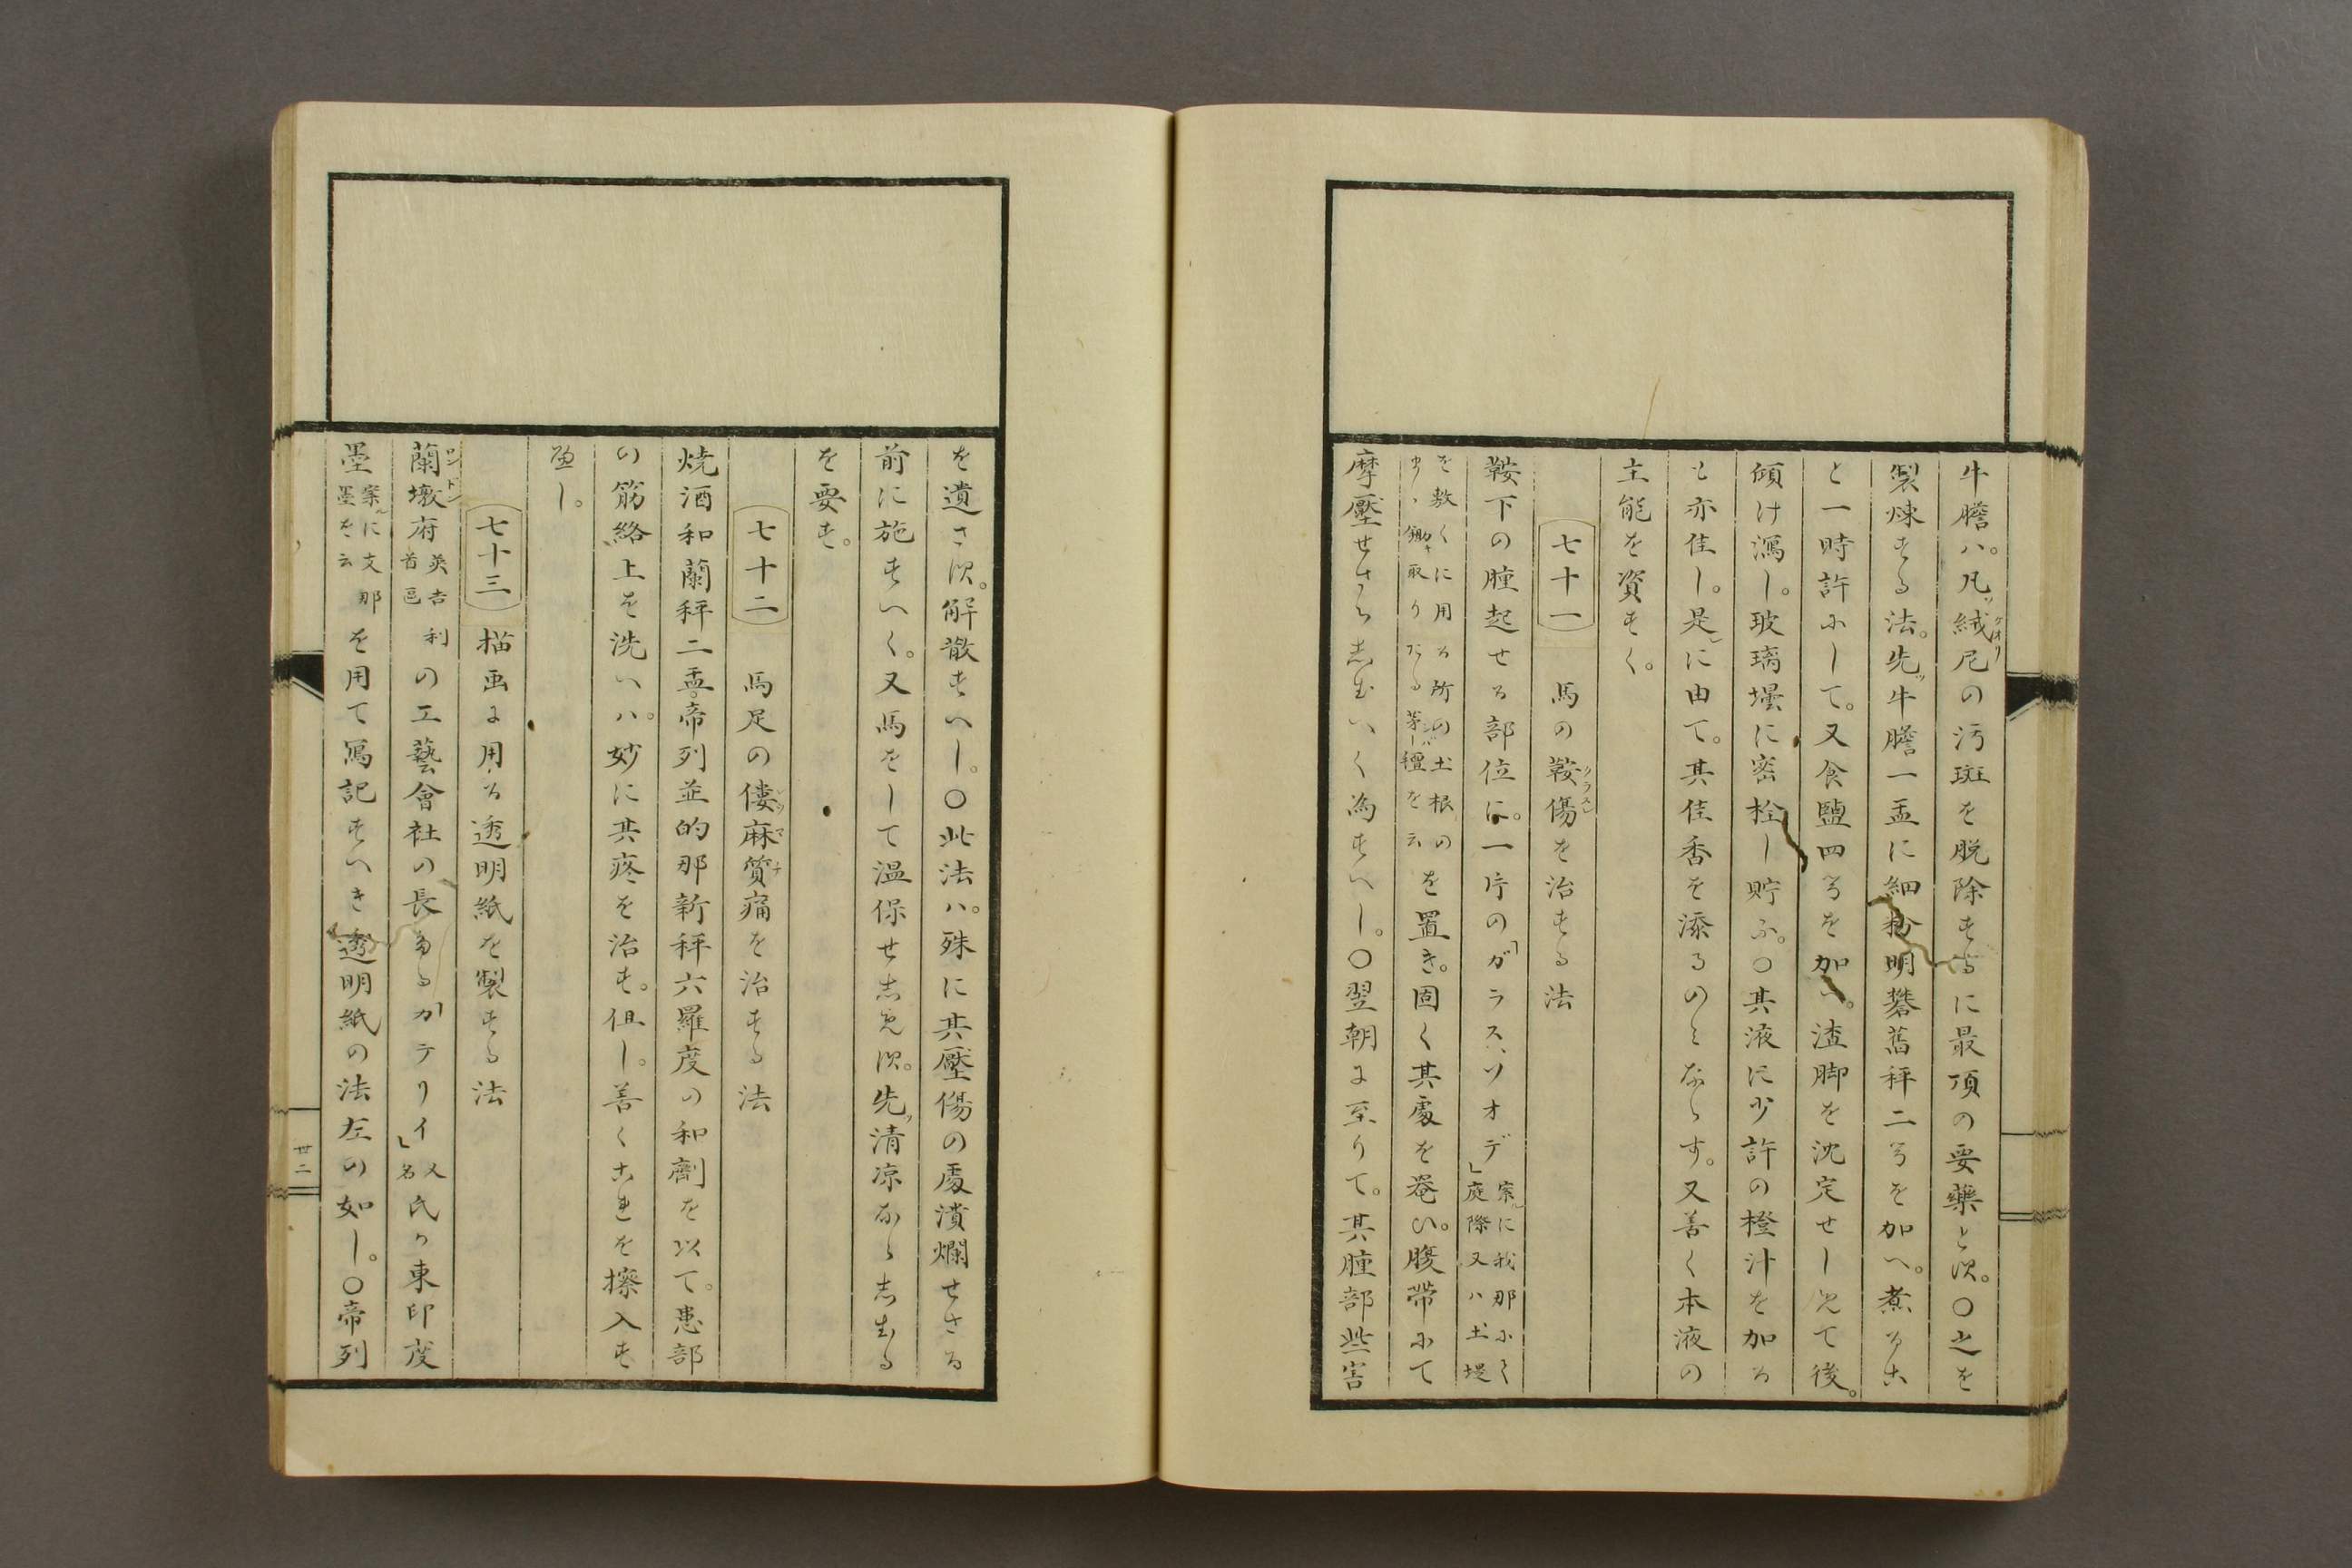 牛膽ハ。凡ソ絨尼の汚斑を脱除する に最頂の要藥とす。〇之を
製煉する法。先ツ牛膽一盂に細粉明礬舊秤二ヲを加へ。煮るこ
と一時許にして。又食鹽四ヲを加へ。渣脚を沈定せしめて後。
傾け瀉し。玻璃壜に密栓し貯ふ。〇其液に少許の橙汁を加る
も亦佳し。是レに由て。其佳香を添るのミならす。又善く本液の
主能を資すく。
七十一 馬の鞍傷を治する法
鞍下の腫起せる部位に。一片の「ガラスソオデ」案ルに我那にく庭際又ハ土堤
を敷くに用る所の土根の鋤キ取りたる芽亶を云を置き。固く其處を菴ひ。腹帶にて
摩壓せさらしむへく為すへし。〇翌朝に至りて。其腫部些害
を遺さす。解散すへし。〇此法ハ。殊に其壓傷の處潰爛せさる
前に施すへく。又馬をして温保せしめす。先ツ清凉ならしむる
を要す。
七十二 馬足の僂麻質痛を治する法
燒酒和蘭秤二盂。帝列並的那新秤六羅度の和劑を以て。患部
の筋絡上を洗へハ。妙に其疼を治す。但し。善くこれを擦入す
へし。
七十三 描画に用る透明紙を製する法
蘭墩府英吉利首邑の工藝會社の長なる「ガテリイ」人名氏の東印度
墨案ルに支那墨を云を用て寫記すへき透明紙の法左の如し。〇帝列
廿二